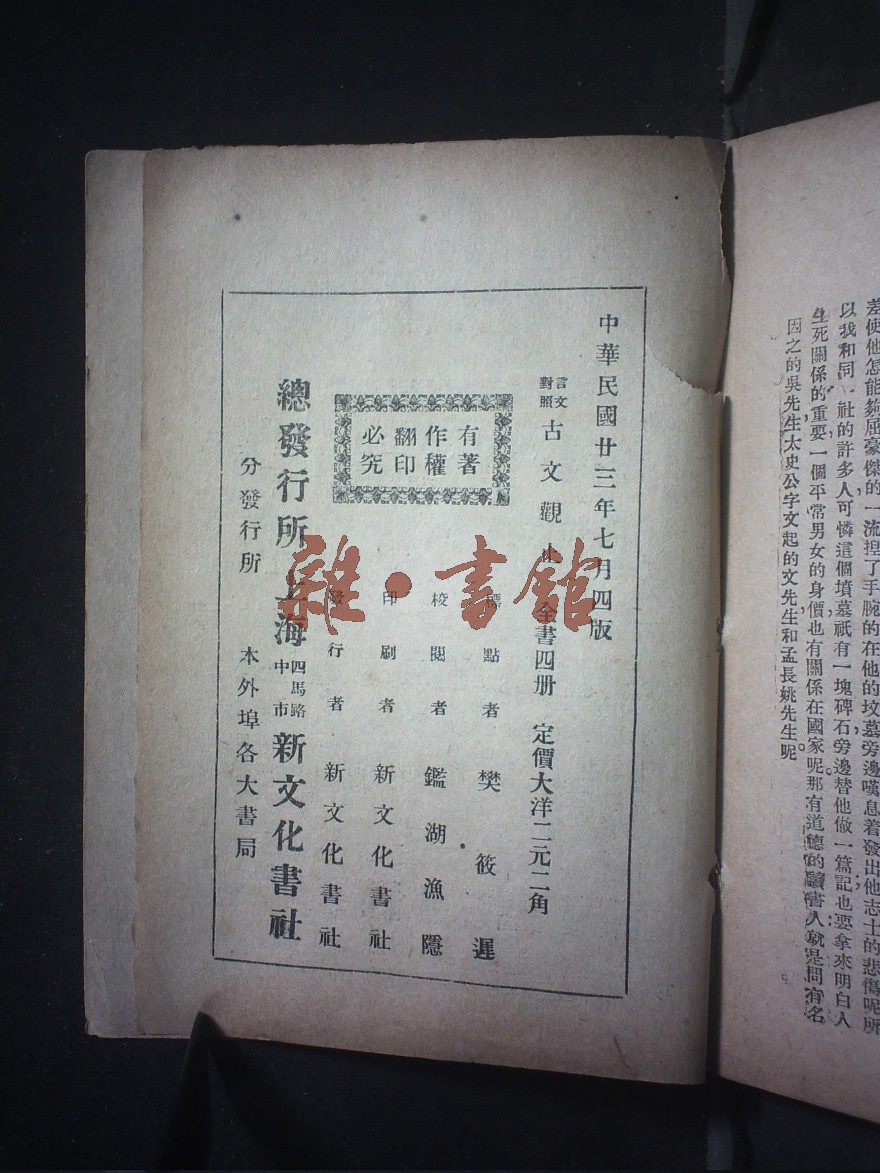 差使他怎能夠屈豪傑的一流捏了手腕的在他的坟墓旁邊嘆息着發出他志士的悲傷呢所
以我和同一社的許多人可憐這個墳墓祇有一塊碑石旁邊替他做一篇記也要拿來明白人
生死關係的重要一個平常男女的身價也有關係在國家呢那有道德的讀書人就是問有名
因之的吳先生太史公字文起的文先生和孟長姚先生呢
中華民國廿三年七月四版
言文對照 古文觀止 全書四册 定價大洋二元二角
有著
作權
翻印
必究
標點者 樊筱遲
校閱者 鑑湖漁隱
印刷者 新文化書社
發行者 新文化書社
總發行所 上海 四馬路中市 新文化書社
分發行所 本外埠各大書局
雜·書館